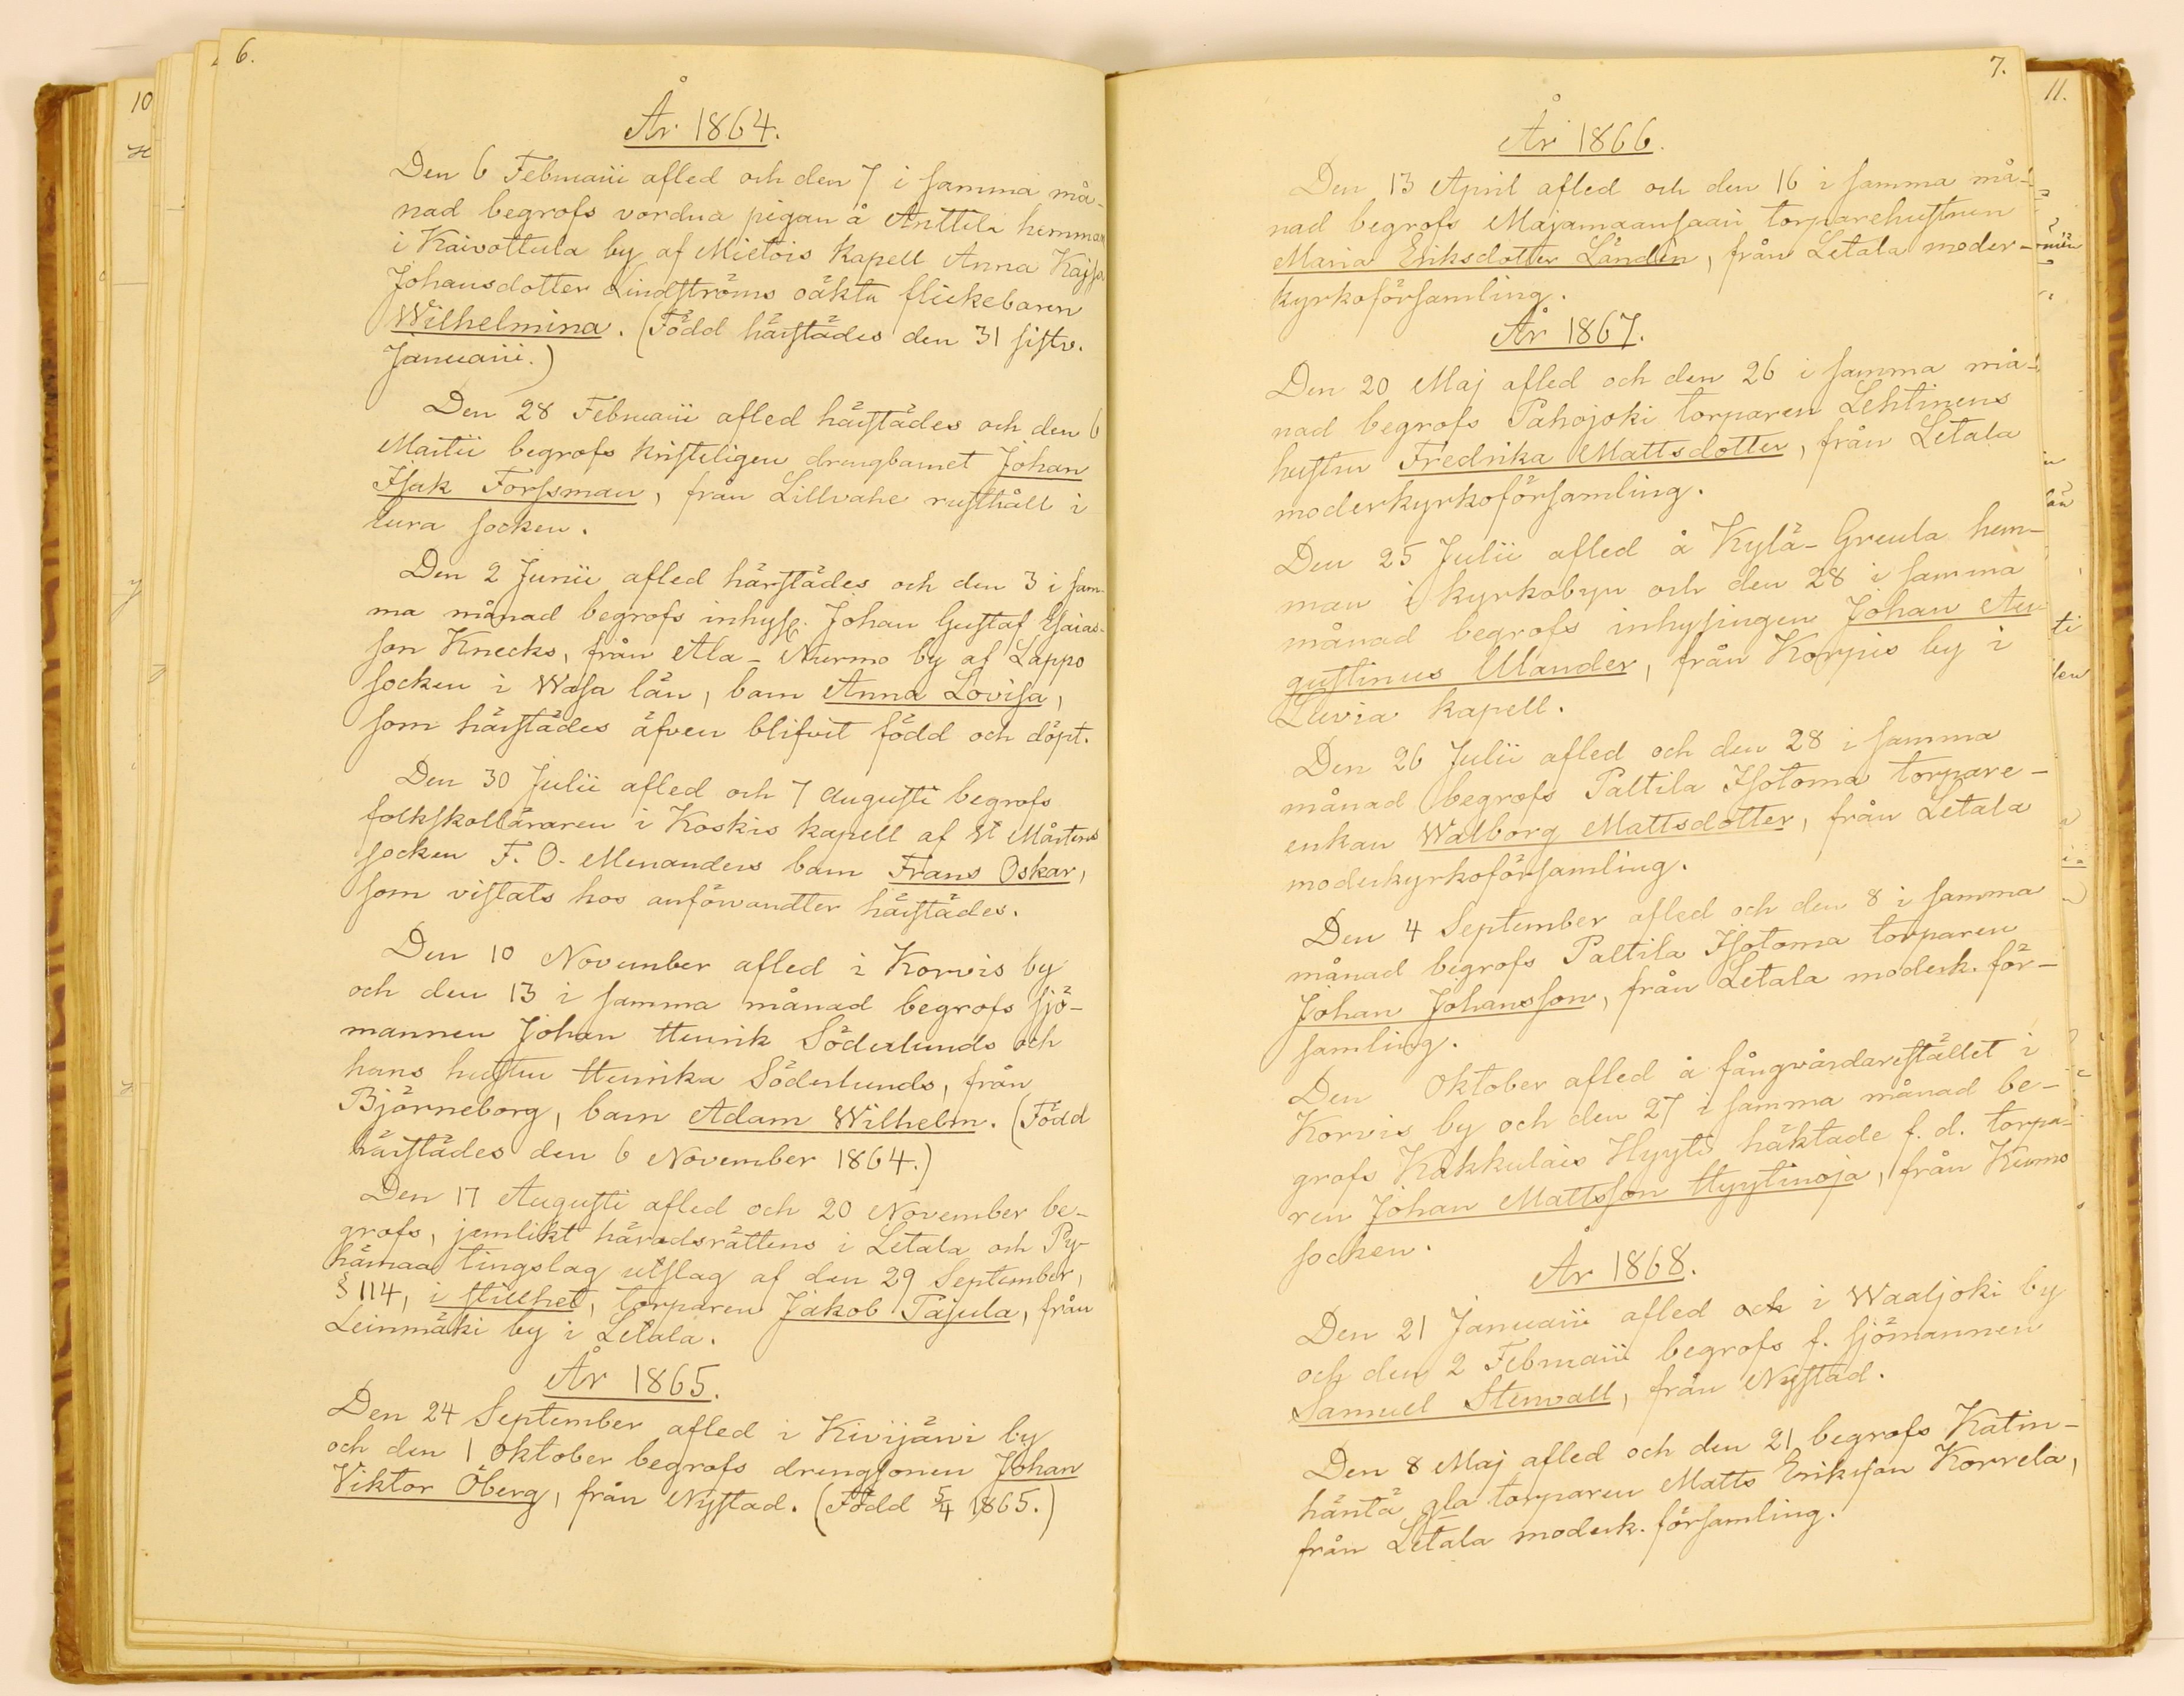 6.
År 1864.
Den 6 Februarii afled och den 7 i samma må-
nad begrofs vordna pigan å Anttila hemman
i Kaivottula by af Mietois kapell Anna Kajsa
Johansdotter Lindströms oäkta flickebaren
Wilhelmina. (Född härstädes den 31 sistv.
Januarii.)
Den 28 Februarii afled härstädes och den 6
Martii begrofs kristeligen drengbarnet Johan
Isak Forssman, från Lillvahe rusthåll i
Eura socken.
Den 2 Junii afled härstädes och den 3 i sam-
ma månad begrofs inhys. Johan Gustaf Esaias-
son Knecks, från Ala-Nurmo by af Lappo
socken i Wasa län, barn Anna Lovisa,
som härstädes äfven blifvit född och döpt.
Den 30 Julii afled och 7 Augusti begrofs
folkskolläraren i Koskis kapell af St Mårtens
socken F. O. Menanders barn Frans Oskar,
som vistats hos anförvandter härstädes.
Den 10 November afled i Korvis by
och den 13 i samma månad begrofs sjö-
mannen Johan Henrik Söderlunds och
hans hustru Henrika Söderlunds, från
Björneborg, barn Adam Wilhelm. (Född
härstädes den 6 November 1864.)
Den 17 Augusti afled och 20 November be-
grofs, jemlikt häradsrättens i Letala och Py-
hämaa tingslag utslag af den 29 September,
§ 114, i stillhet, torparen Jakob Pasula, från
Leinmäki by i Letala.
År 1865.
Den 24 September afled i Kivijärvi by
och den 1 Oktober begrofs drengsonen Johan
Viktor Öberg, från Nystad. (Född 5/4 1865.)
7.
År 1866.
Den 13 April afled och den 16 i samma må-
nad begrofs Majamaansaari torparehustrun
Maria Eriksdotter Landen, från Letala moder-
kyrkoförsamling.
År 1867.
Den 20 Maj afled och den 26 i samma må-
nad begrofs Pahojoki torparen Lehtinens
hustru Fredrika Mattsdotter, från Letala
moderkyrkoförsamling.
Den 25 Julii afled å Kylä-Greula hem-
man i kyrkobyn och den 28 i samma
månad begrofs inhysingen Johan Au
gustinus Ulander, från Korpis by i
Luvia kapell.
Den 26 Julii afled och den 28 i samma
månad begrofs Paltila Isotoma torpare-
enkan Walborg Mattsdotter, från Letala
moderkyrkoförsamling.
Den 4 September afled och den 8 i samma
månad begrofs Paltila Isotoma torparen
Johan Johansson, från Letala moderk. för-
samling.
Den Oktober afled å fångvårdarestället i
Korvis by och den 27 i samma månad be-
grofs Kakkulais Hyytö häktade f. d. torpa-
ren Johan Mattsson Hyytinoja, från Kumo
socken.
År 1868.
Den 21 Januarii afled och i Waaljoki by
och den 2 Februarii begrofs f. sjömannen
Samuel Stenvall, från Nystad.
Den 8 Maj afled och den 21 begrofs Katin-
häntä gla torparen Matts Eriksson Korrela,
från Letala moderk. församling.
10
11.